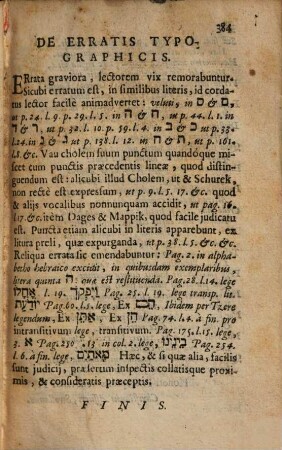 384
DE ERRATIS TYPO-
GRAPHICIS.
ERrata graviora, lectorem vix remorabuntur.
Sicubi erratum est, in similibus literis, id corda-
tus lector facilè animadvertet: velut, in ם & ס
ut p.24. l. 9. p. 29. l. 5. in ה & ח ut p. 44. l. 1. in
ר & ד ut p. 32. l. 10. p. 59. l. 4. in כ & ב ut p. 33.
l.24. in נ & ג ut p. 138. l. 12. in ut p. 161.
l. 8. &c. Vau cholem suum punctum quandóque mi-
scet cum punctis præcedentis lineæ, quod distin-
guendum est: alicubi illud Cholem, ut & Schurek
non rectè est expressum, ut p. 9. l. 5. 17. &c. quod
& alijs vocalibus nonnunquam accidit, ut pag. 16.
l. 7. &c. item Dages & Mappik, quod facile judicatu
est. Puncta etiam alicubi in literis apparebunt, ex
litura preli, quæ expurganda, ut p. 38. l. 5. &c. &c.
Reliqua errata sic emendabuntur: Pag. 2. in alpha-
betho hebraico excidit, in quibusdam exemplaribus,
litera quinta ה: quæ est restituenda. Pag. 28. l. 14. lege
l. 19. Pag. 25. l. 19. lege transp. lit.
Pag. 60. l. 15. lege, Ex הֵם, Ibidem per Tzere
legendum, Ex Ex הֵן Pag. 74. l. 4. à fin. pro
intransitivum lege, transitivum. Pag. 175. l. 15. lege,
א. Pag. 230. 13 in col. 2. lege, Pag. 254.
l. 6. à fine, lege, מָאתַיִם Hæc, & si quæ alia, facilis
sunt judicij, præsertim inspectis collatisque proxi-
mis, & consideratis præceptis.
FINIS.